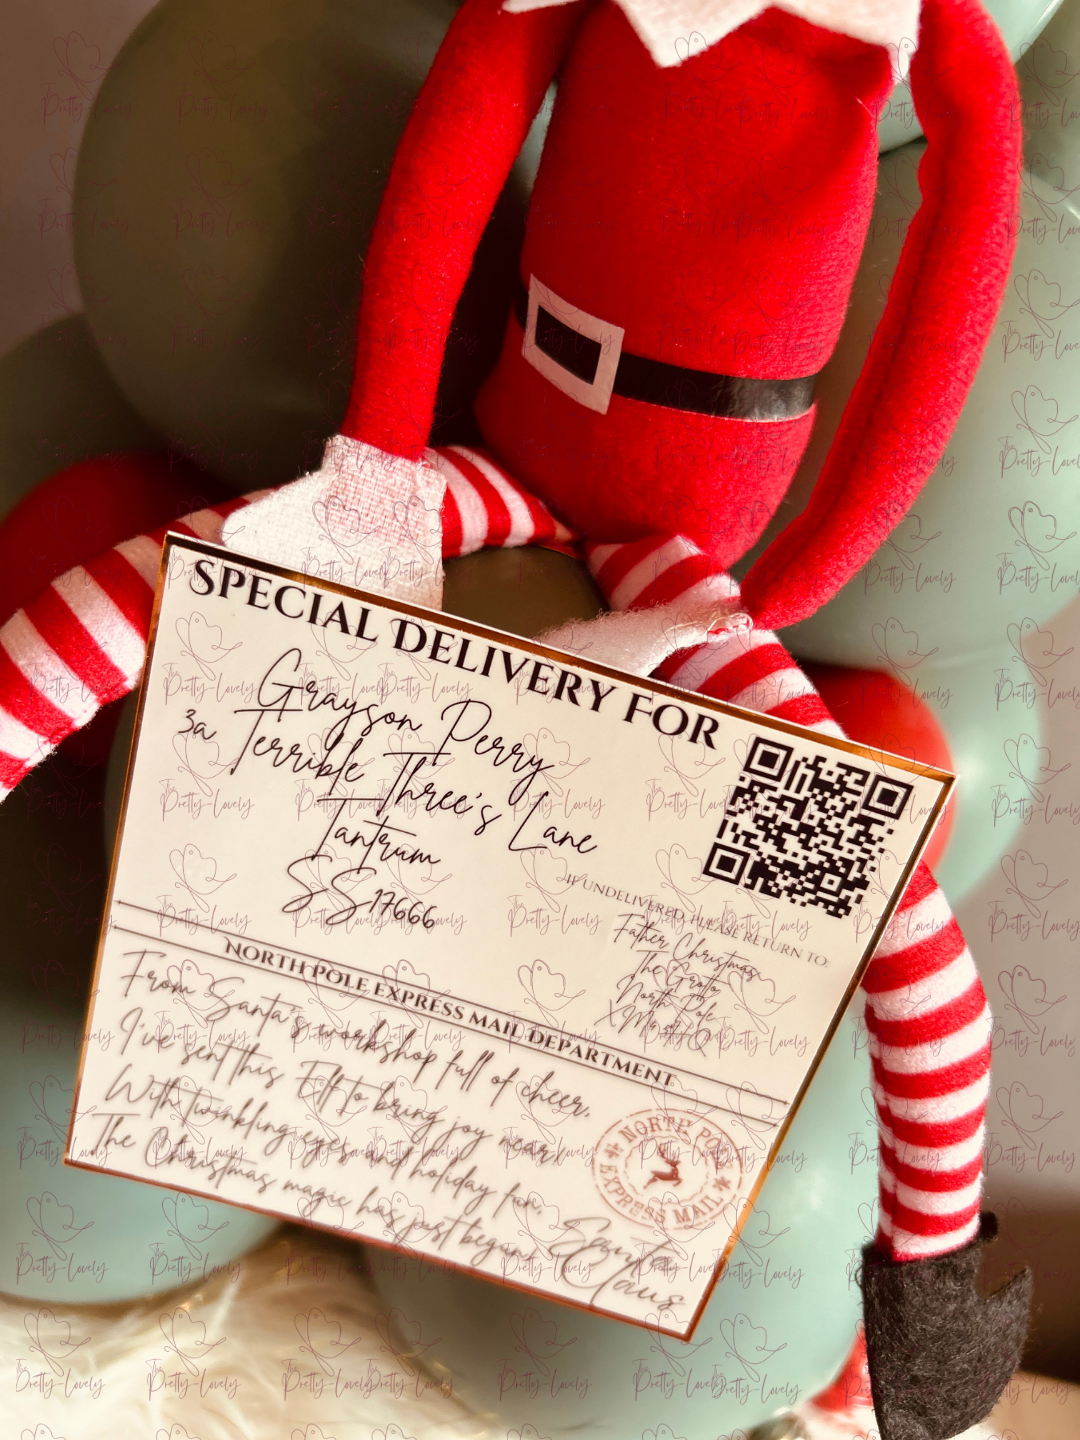 SPECIAL DELIVERY FOR
Grayson Perry
3a Terrible Three's Lane
Tantrum
SS17666
IF UNDELIVERED, PLEASE RETURN TO:
Father Christmas
The Grotto
North Pole
NORTH POLE EXPRESS MAIL DEPARTMENT
From Santa's workshop full of cheer,
I've sent this Elf to bring joy near,
With twinkling eyes and holiday fun,
The Christmas magic has just begun.
Santa
Claus
NORTH POLE
EXPRESS MAIL
The Pretty-Lovely